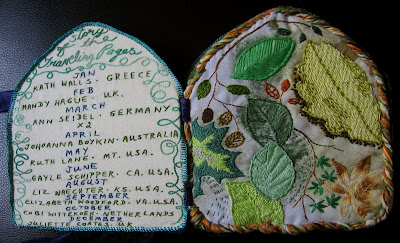 Story
of the
Traveling Pages
JAN
KATH WALLS - GREECE
FEB
MANDY HAGUE - UK.
MARCH
ANN SEIDEL - GERMANY
X2
APRIL
JOHOANNA BOYKIN - AUSTRALIA
MAY
RUTH LANE - MT. USA.
JUNE
GAYLE SCHIPPER - CA. USA.
AUGUST
LIZ - KS. U.S.A.
SEPTEMBER
ELIZABETH WOODFORD - VA. U.S.A.
OCTOBER
COBI WITTEKOEK - NETHERLANDS
DECEMBER
JULIETTE